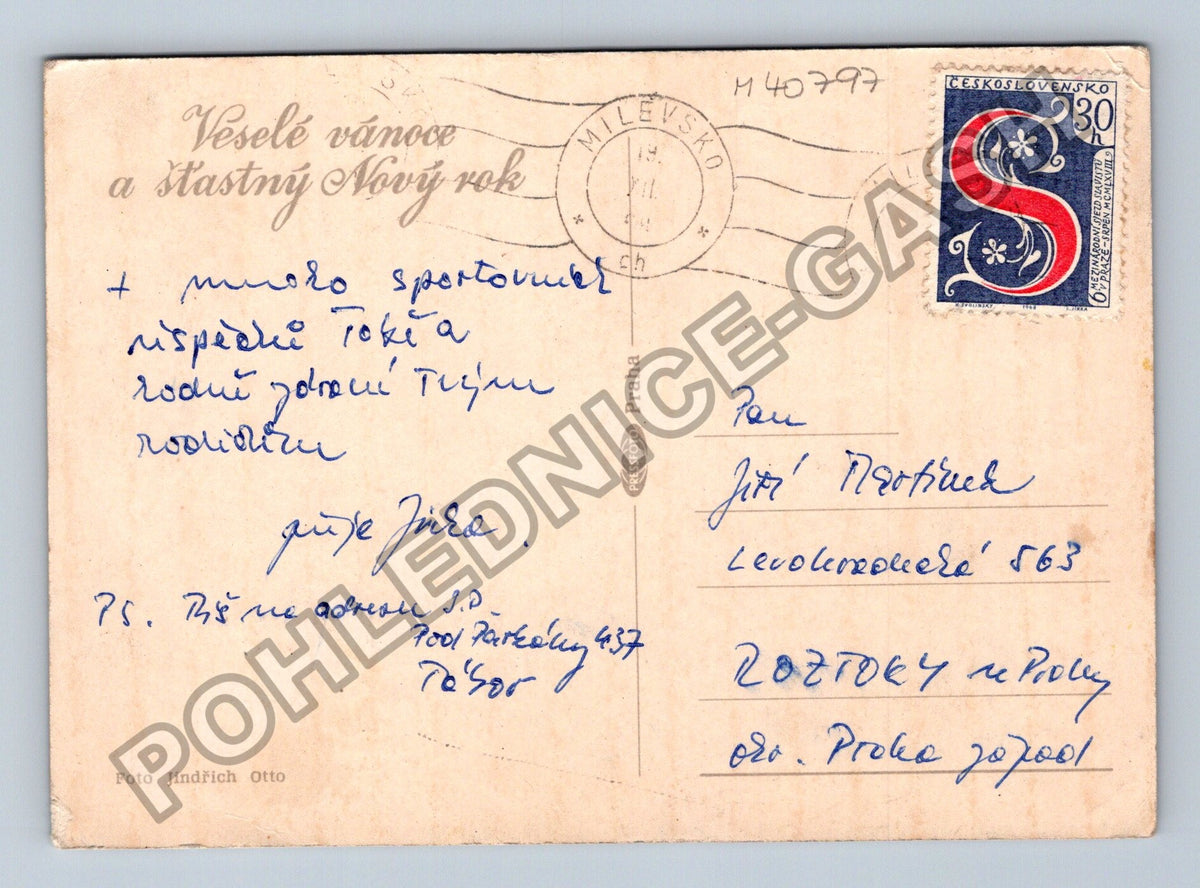 M 40797
ČESKOSLOVENSKO
30
h
6. MEZINÁRODNÍ SJEZD SLAVISTŮ
V PRAZE - SRPEN MCMLXVIII
1968
MILEVSKO
19.
XII.
ch
Veselé vánoce
a šťastný Nový rok
+ mnoho sportovních
úspěchů Tobě a
hodně zdraví Tvým
rodičům
přeje Jirka.
PS. Piš na adresu J.D.
Pod Parkány 437
Tábor
Foto Jindřich Otto
PRESSFOTO Praha
Pan
Jiří Martínek
Levohradecká 563
ROZTOKY u Prahy
okr. Praha západ
POHLEDNICE-GASH